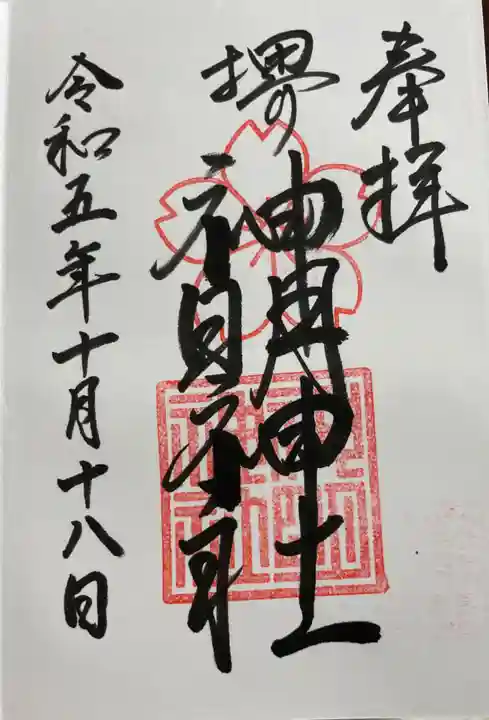 奉拝
堺の
神明神社
令和五年十月十八日